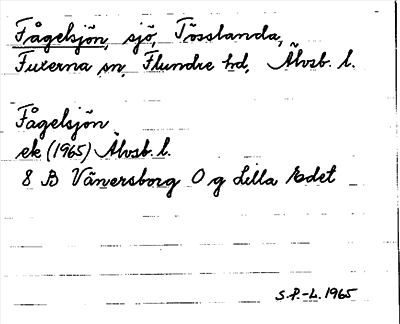 Fågelsjön, sjö, Tösslanda,
Fuxerna sn, Flundre hd, Älvsb. l.
Fågelsjön
ek (1965) Älvsb. l.
8 B Vänersborg O g Lilla Edet
S.P.-L. 1965